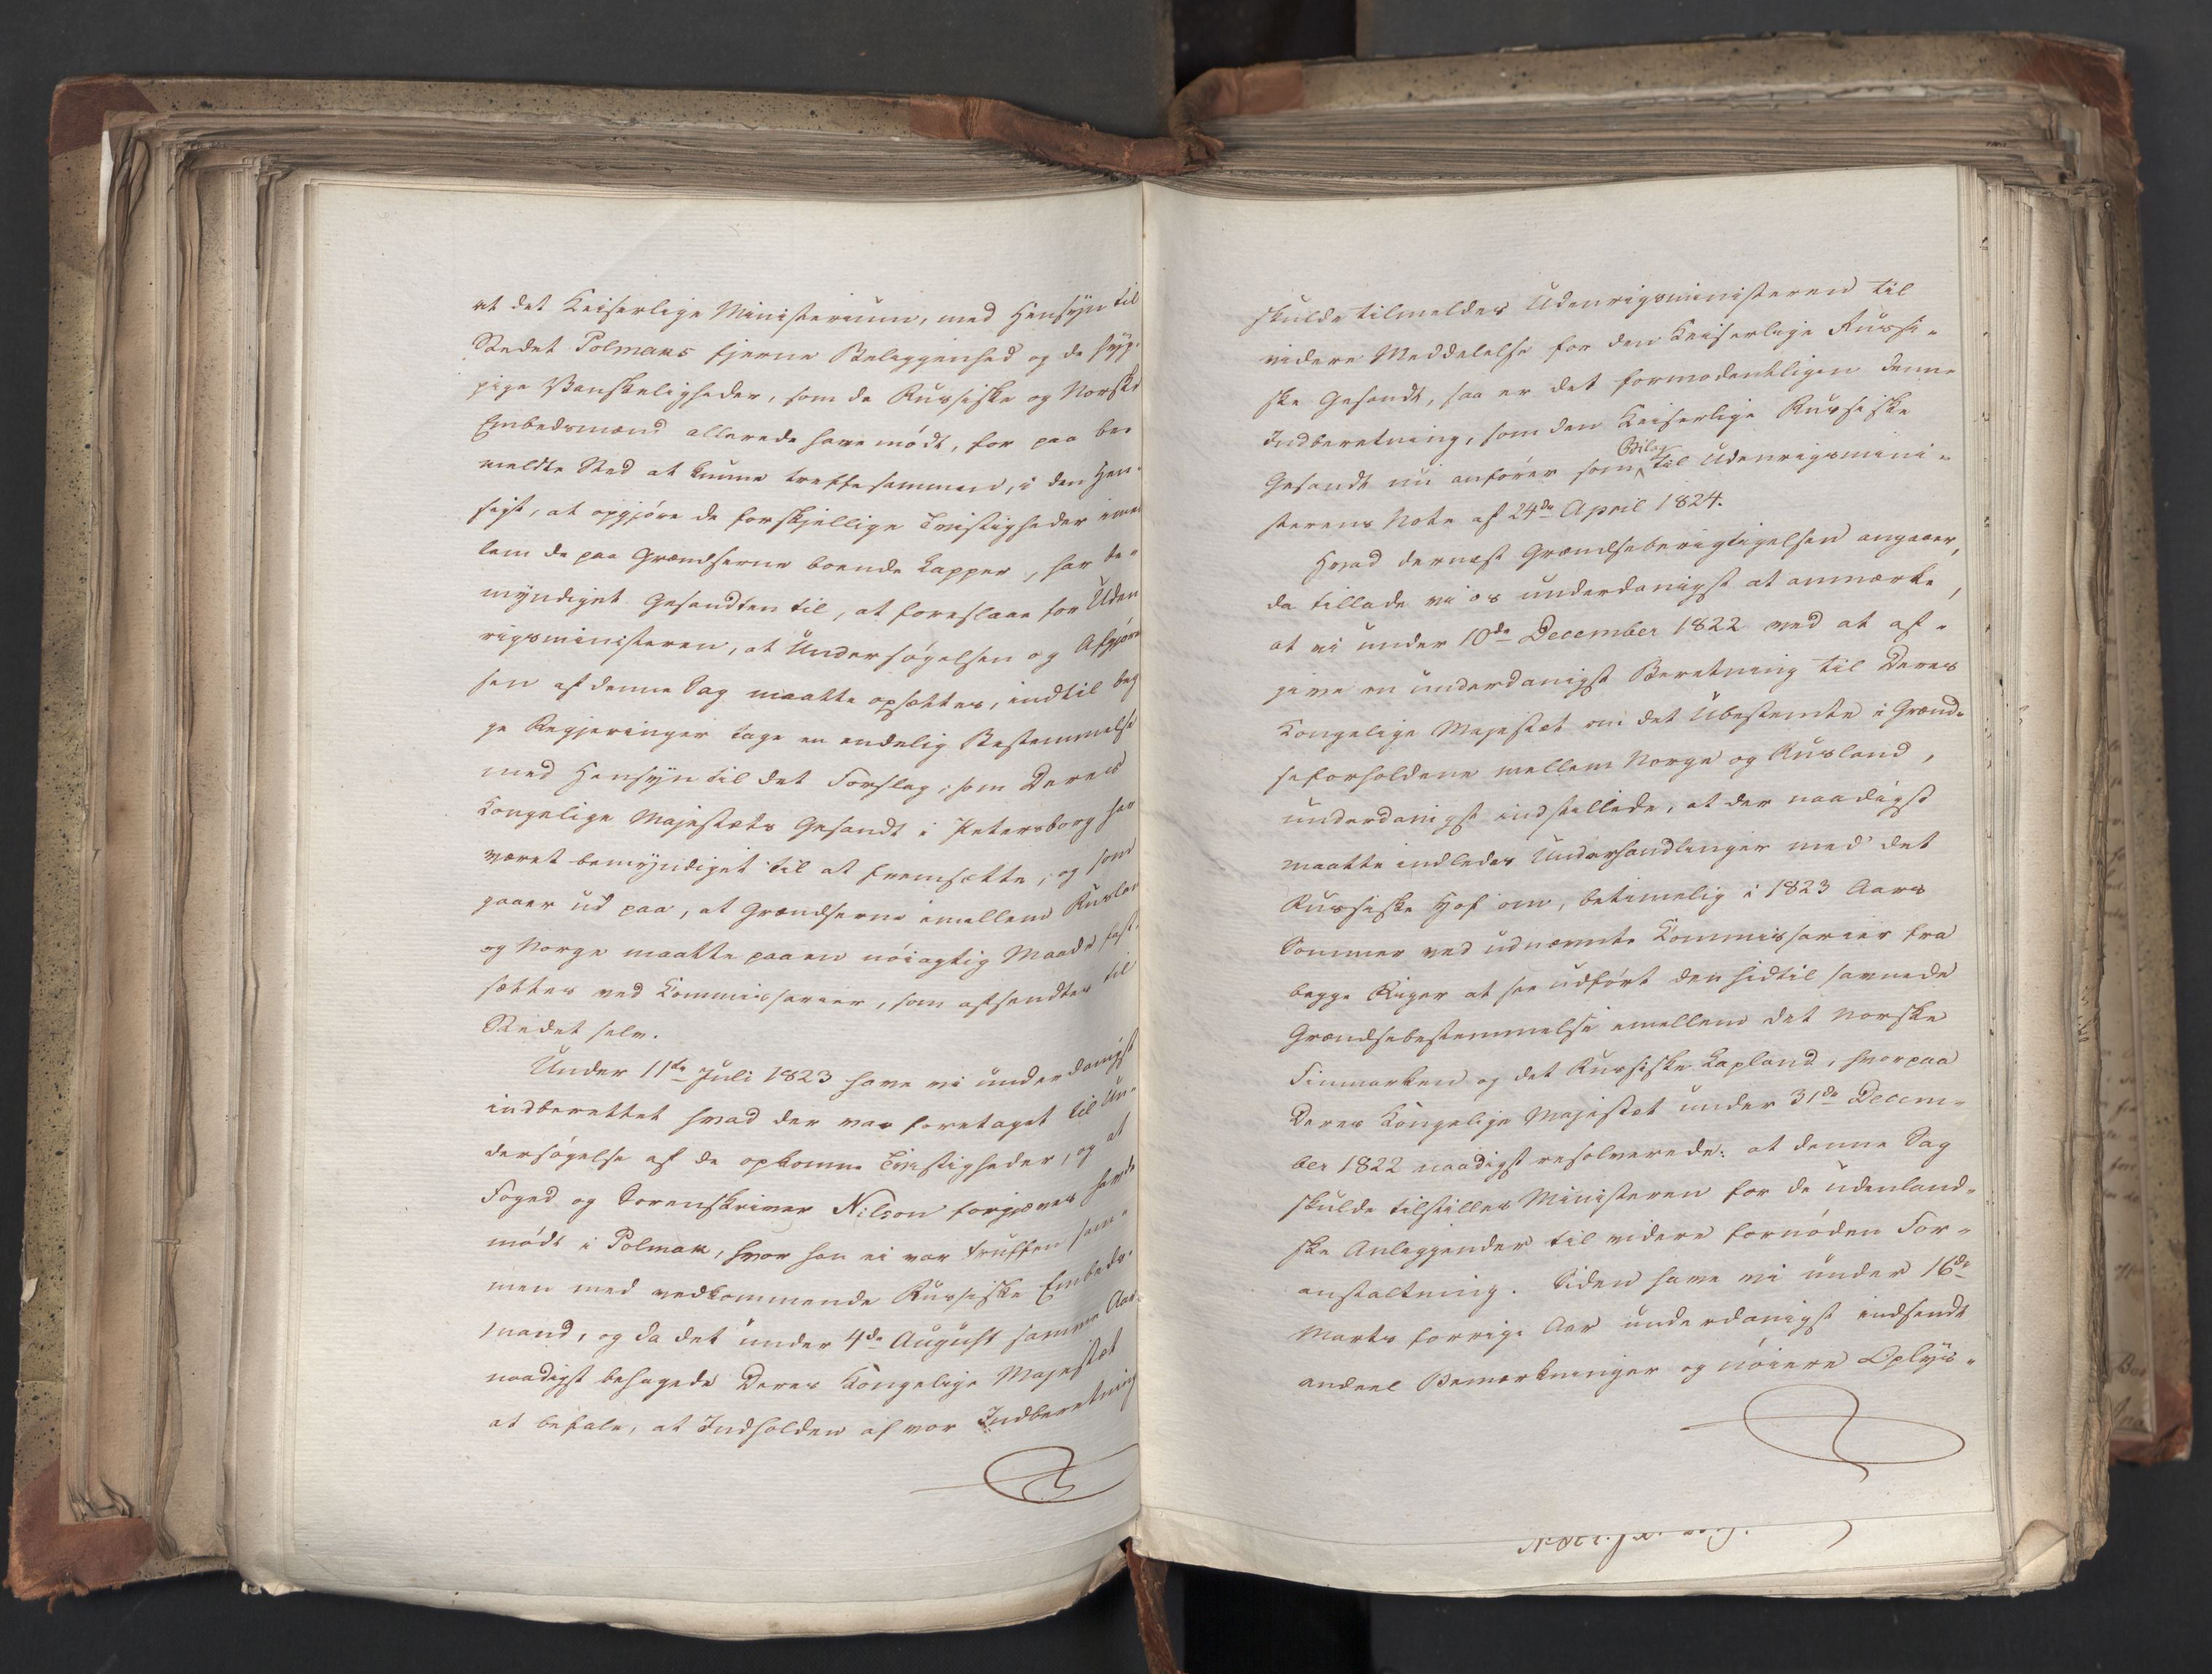 at det Keiserlige Ministerium, med Hensyn til
Stedet Polmaks fjerne Beliggenhed og de hyp-
pige Vanskeligheder, som de Russiske og Norske
Embedsmænd allerede have mødt, for paa be-
meldte Sted at kunne træffe sammen, i den Hen-
sigt, at opgjøre de forskjellige Tvistigheder imel
lem de paa Grændserne boende Lapper, har be-
myndiget Gesandten til, at foreslaae for Uden
rigsministeren, at Undersøgelsen og Afgjørel
sen af denne Sag maatte opsættes, indtil beg
ge Regjeringer tage en endelig Bestemmelse
med Hensyn til det Forslag, som Deres
Kongelige Majestæts Gesandt i Petersborg har
været bemyndiget til at fremsætte, og som
gaaer ud paa, at Grændserne imellem Rusland
og Norge maatte paa en nøiagtig Maade fast-
sættes ved Kommissarier, som afsendtes til
Stedet selv.
Under 11te Juli 1823 have vi underdanigst
indberettet hvad der var foretaget til Un-
dersøgelse af de opkomne Tvistigheder, og at
Foged og Sorenskriver Nilson forgjæves havde
mødt i Polmak, hvor han ei var truffen sam-
men med vedkommende Russiske Embeds-
mænd, og da det under 4de August samme Aar
naadigst behagede Deres Kongelige Majestæt
at befale, at Indholden af vor Indberetning
skulde tilmeldes Udenrigsministeren til
videre Meddelelse for den Keiserlige Russi-
ske Gesandt, saa er det formodentligen denne
Indberetning, som den Keiserlige Russiske
Gesandt nu anfører som Bilag til Udenrigsmini-
sterens Note af 24de April 1824.
Hvad dernæst Grændseberigtigelsen angaaer,
da tillade vi os underdanigst at anmærke,
at vi under 10de December 1822 ved at af-
give en underdanigst Beretning til Deres
Kongelige Majestæt om det Ubestemte i Grænd-
seforholdene mellem Norge og Rusland,
underdanigst indstillede, at der naadigst
maatte indledes Underhandlinger med det
Russiske Hof om, betimelig i 1823 Aars
Sommer ved udnævnte Kommissarier fra
begge Riger at see udført den hidtil savnede
Grændsebestemmelse imellem det norske
Finmarken og det Russiske Lapland, hvorpaa
Deres Kongelige Majestæt under 31de Decem-
ber 1822 naadigst resolverede: at denne Sag
skulde tilstilles Ministeren for de udenland-
ske Anliggender til videre fornøden For-
anstaltning. Siden have vi under 16de
Marts forrige Aar underdanigst indsendt
andeel Bemærkninger og nøiere Oplys-